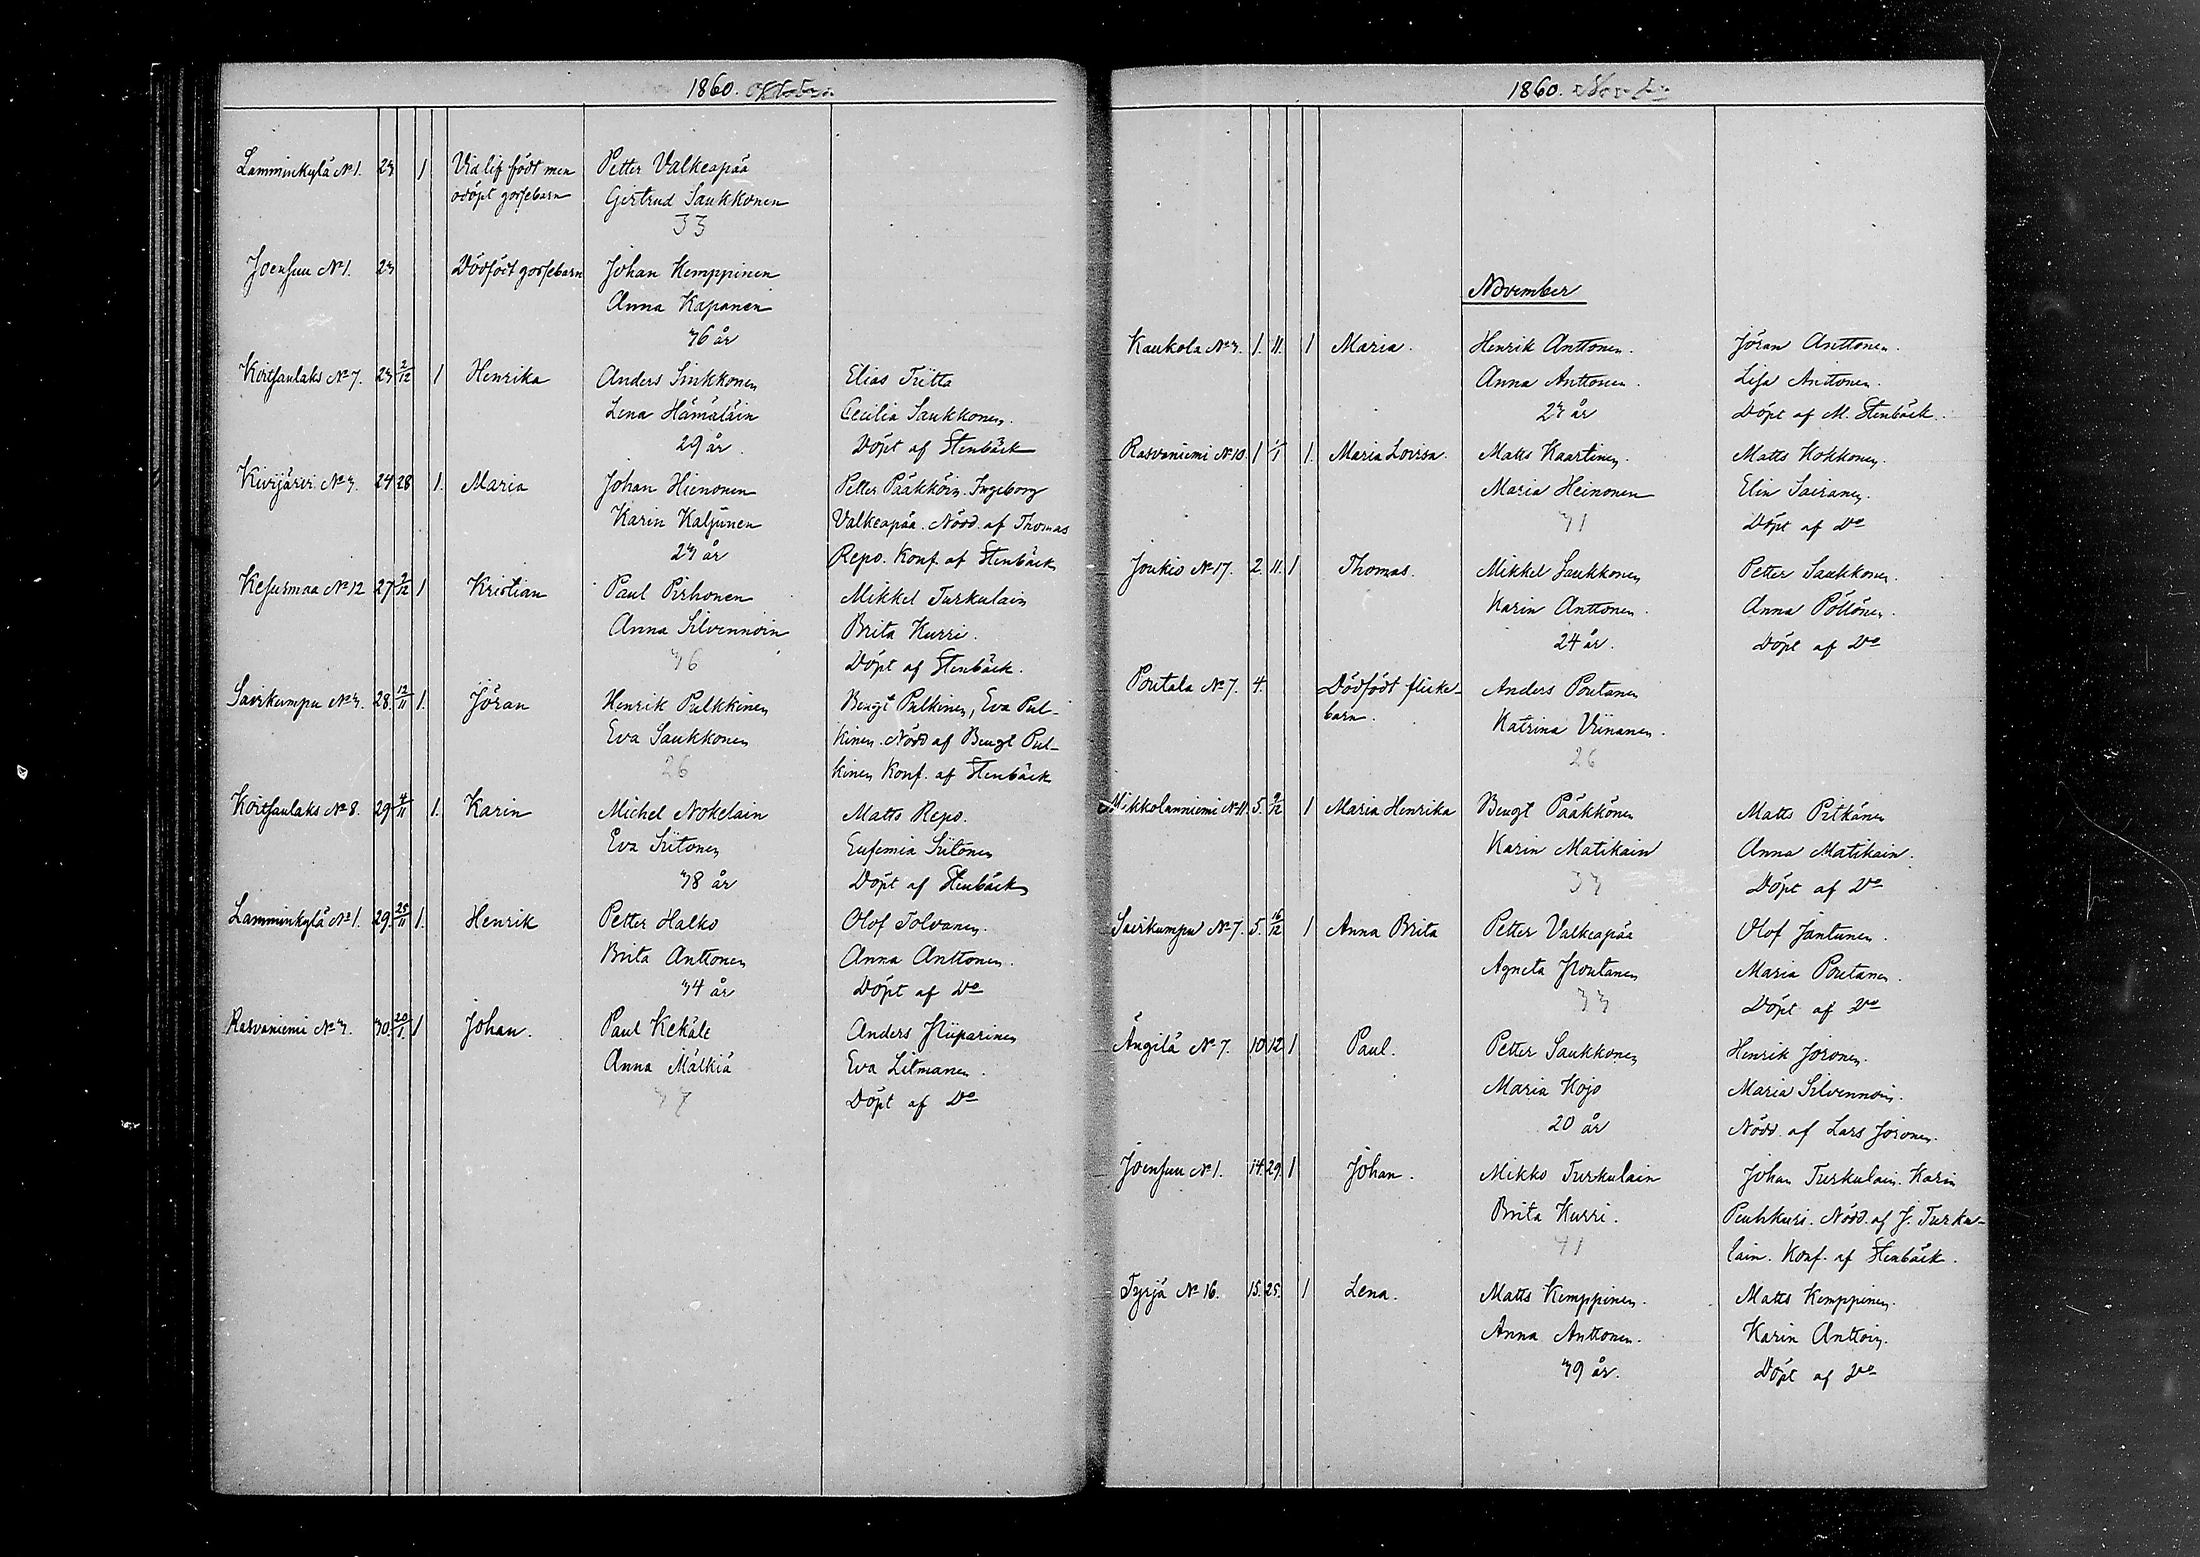 1860. Oktober
Lamminkylä No 1. 23 1 Vid lif födt men Petter Valkeapää
odöpt gossebarn Gertrud Saukkonen
33
Joensuu No 1. 23 Dödfödt gossebarn Johan Kemppinen
Anna Kaponen
36 år
Koitsanlaks No 7. 23 2/12 1 Henrika Anders Sinkkonen Elias Tiitta
Lena Hämäläin Cecilia Saukkonen.
29 år. Döpt af Stenbäck
Kivijärvi No 3. 24 28 1. Maria Johan Hienonen Petter Pääkköin. Ingeborg
Karin Kaljunen Valkeapää. Nödd. af Thomas
23 år Repo. Konf. af Stenbäck
Kesusmaa No 12 27 2/12 1 Kristian Paul Pirhonen Mikkel Turkulain
Anna Silvennoin Brita Kurri.
36 Döpt af Stenbäck.
Sairkumpu No 3. 28. 12/11 1. Jöran Henrik Pulkkinen Bengt Pulkinen, Eva Pul-
Eva Saukkonen kinen. Nödd af Bengt Pul-
26 kinen Konf. af Stenbäck
Koitsanlaks No 8. 29 4/11 1. Karin Michel Nokelain Matts Repo.
Eva Siitonen Eufemia Siitonen
38 år Döpt af Stenbäck
Lamminkylä No 1. 29. 25/11 1. Henrik Petter Halko Olof Tolvanen.
Brita Anttonen Anna Anttonen.
34 år Döpt af Do
Rasvaniemi No 3. 30. 20/1. 1 Johan. Paul Kekäle Anders Hiiparinen
Anna Mälkiä Eva Litmanen.
37 Döpt af Do
1860. Novbr
November
Kaukola No 3. 1. 11. 1 Maria. Henrik Anttonen. Jöran Anttonen.
Anna Anttonen. Lisa Anttonen.
23 år Döpt af M. Stenbäck.
Rasvaniemi No 10. 1 1/1 1. Maria Lovisa. Matts Kaartinen. Matts Kokkonen.
Maria Heinonen Elin Sairanen.
31 Döpt af Do
Joukio No 17. 2. 11. 1 Thomas. Mikkel Saukkonen Petter Saukkonen.
Karin Anttonen. Anna Pöllönen.
24 år. Döpt af Do
Poutala No 7. 4. Dödfödt flicke- Anders Poutanen
barn. Katrina Viinanen.
26
Mikkolanniemi No 11. 5. 9/12 1 Maria Henrika Bengt Pääkkönen Matts Pitkänen
Karin Matikain Anna Matikain.
37 Döpt af Do
Sairkumpu No 7. 5. 16/12 1 Anna Brita Petter Valkeapää Olof Jantunen.
Agneta Poutanen Maria Poutanen.
33 Döpt af Do
Ängilä No 7. 10 12 1 Paul. Petter Saukkonen Henrik Joronen.
Maria Kojo Maria Silvennoin.
20 år Nödd. af Lars Joronen.
Joensuu No 1. 14. 29. 1 Johan. Mikko Turkulain Johan Turkulain. Karin
Brita Kurri. Peuhkuri. Nödd. af J. Turku-
41 lain. Konf. af Stenbäck.
Tyrjä No 16. 15. 25. 1 Lena. Matts Kemppinen. Matts Kemppinen.
Anna Anttonen. Karin Anttoin.
39 år. Döpt af Do